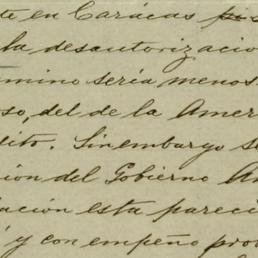 te en Carácas
la desautorizacio
mino seria menos
oso, del de la Amer
lito. Sin embargo se
ion del Gobierno Am
lacion esta pareci
y con empeño pro